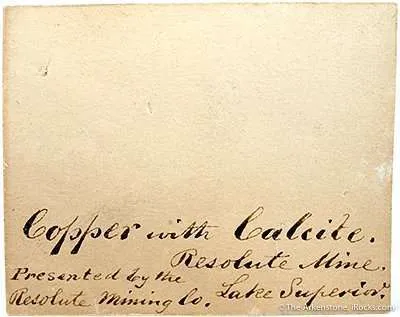 Copper with Calcite.
Resolute Mine.
Presented by the
Resolute Mining Co. Lake Superior.
© The Arkenstone, iRocks.com